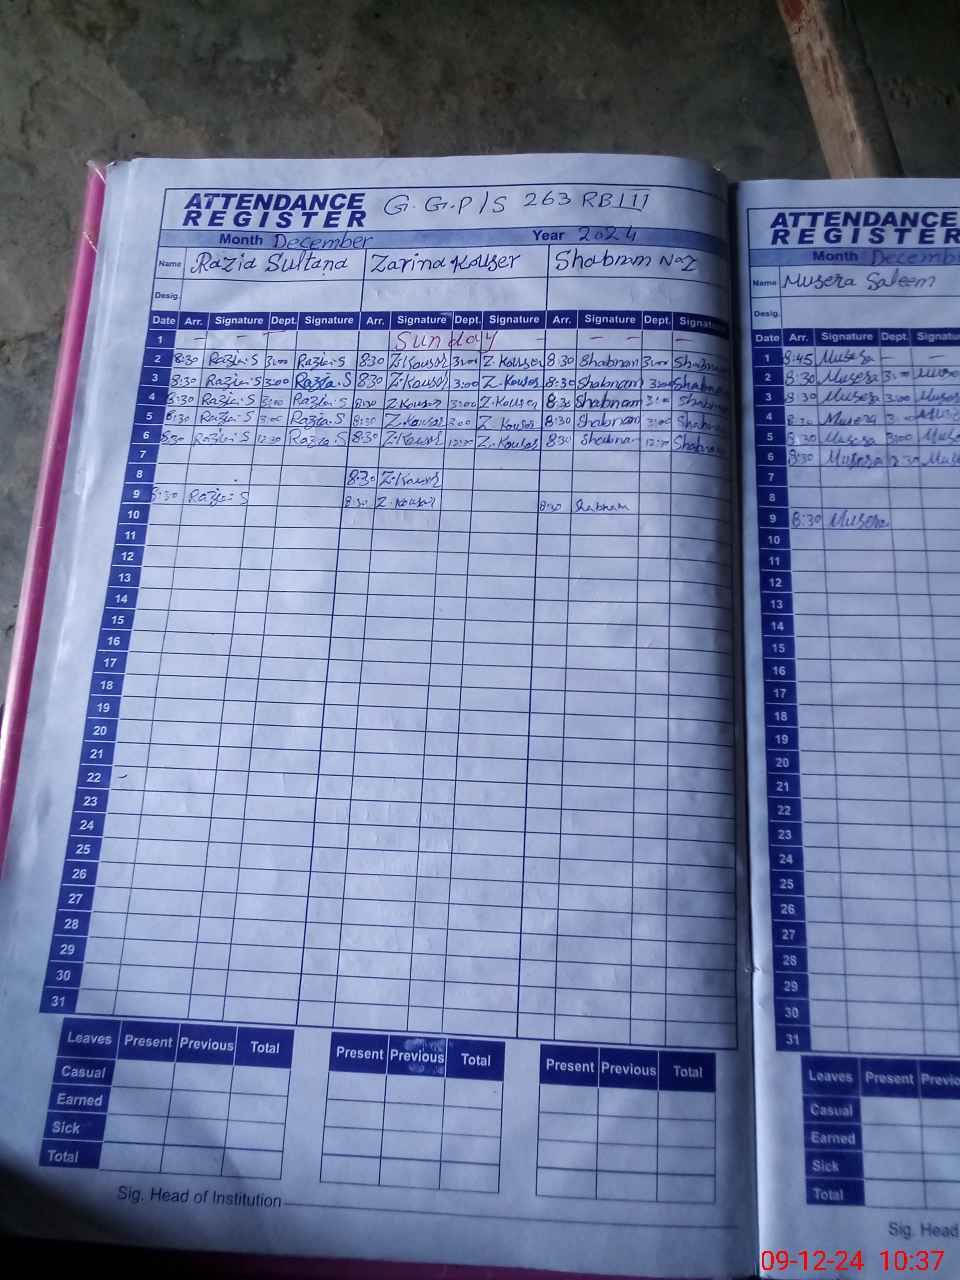 ATTENDANCE REGISTER G.G.P/S 263 RB III
Month December Year 2024
Name Razia Sultana Zarina Kouser Shabnam Naz
Desig.
Date Arr. Signature Dept. Signature Arr. Signature Dept. Signature Arr. Signature Dept. Signature
1 - - - - Sunday - - - -
2 8:30 Razia.S 3:00 Razia.S 8:30 Z.Kouser 3:00 Z.Kouser 8:30 Shabnam 3:00 Shabnam
3 8:30 Razia.S 3:00 Razia.S 8:30 Z.Kouser 3:00 Z.Kouser 8:30 Shabnam 3:00 Shabnam
4 8:30 Razia.S 3:00 Razia.S 8:30 Z.Kouser 3:00 Z.Kouser 8:30 Shabnam 3:00 Shabnam
5 8:30 Razia.S 3:00 Razia.S 8:30 Z.Kouser 3:00 Z.Kouser 8:30 Shabnam 3:00 Shabnam
6 8:30 Razia.S 12:30 Razia.S 8:30 Z.Kouser 12:30 Z.Kouser 8:30 Shabnam 12:30 Shabnam
7
8 8:30 Z.Kouser
9 8:30 Razia.S 8:30 Z.Kouser 8:30 Shabnam
10
11
12
13
14
15
16
17
18
19
20
21
22
23
24
25
26
27
28
29
30
31
Leaves Present Previous Total Present Previous Total Present Previous Total
Casual
Earned
Sick
Total
Sig. Head of Institution
ATTENDANCE
REGISTER
Month December
Name Musera Saleem
Desig.
Date Arr. Signature Dept. Signature
1 8:45 Musera - -
2 8:30 Musera 3:00
3 8:30 Musera 3:00
4 8:30 Musera 3:00
5 8:30 Musera 3:00
6 8:30 Musera 12:30
7
8
9 8:30 Musera
10
11
12
13
14
15
16
17
18
19
20
21
22
23
24
25
26
27
28
29
30
31
Leaves Present
Casual
Earned
Sick
Total
Sig. Head
09-12-24 10:37